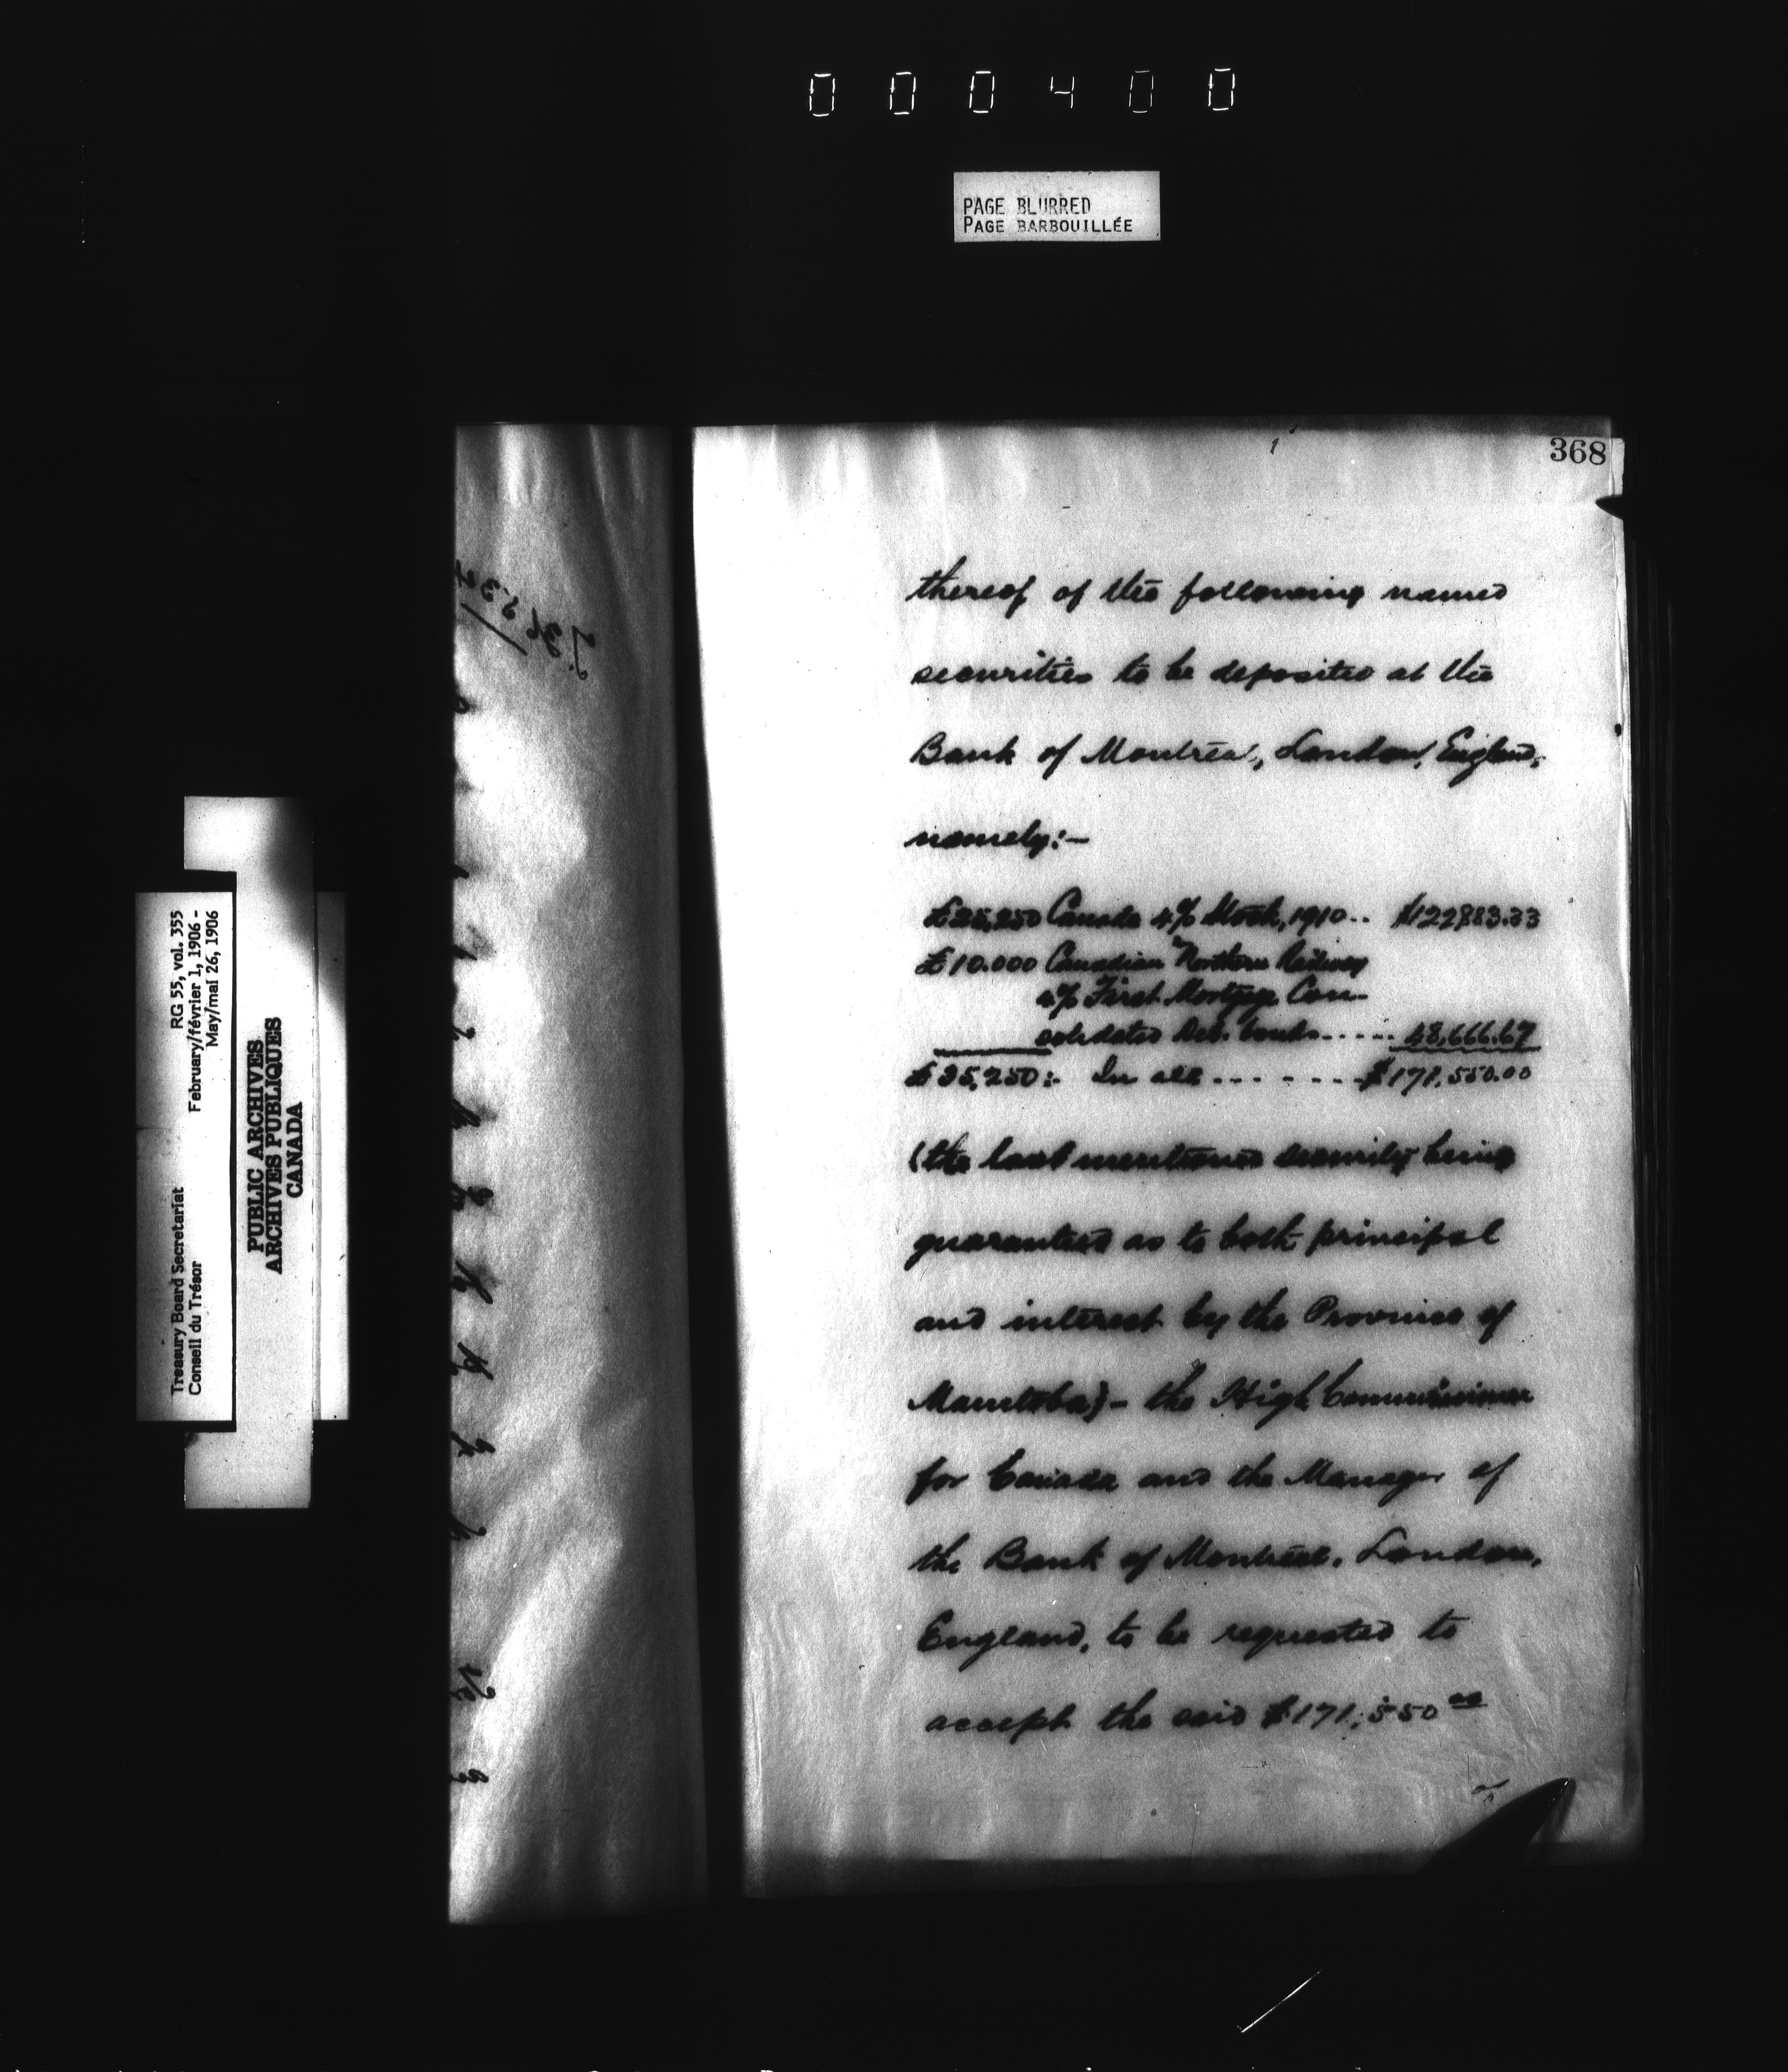 000400
PAGE BLURRED
PAGE BARBOUILLÉE
368
thereof of the following named
securities to be deposited at the
Bank of Montreal, London, England,
namely:-
£25,250 Canada 4% Stock, 1910.. $122,883.33
£10.000 Canadian Northern Railway
4% First Mortgage Con-
solidated Deb. bonds...... 48,666.67
£35,250:- In all ... - - - - - $171,550.00
(the last mentioned security being
guaranteed as to both principal
and interest by the Province of
Manitoba) - the High Commissioner
for Canada and the Manager of
the Bank of Montreal, London,
England, to be requested to
accept the said $171,550 00
Treasury Board Secretariat RG 55, vol. 355
Conseil du Trésor February/février 1, 1906 -
May/mai 26, 1906
PUBLIC ARCHIVES
ARCHIVES PUBLIQUES
CANADA